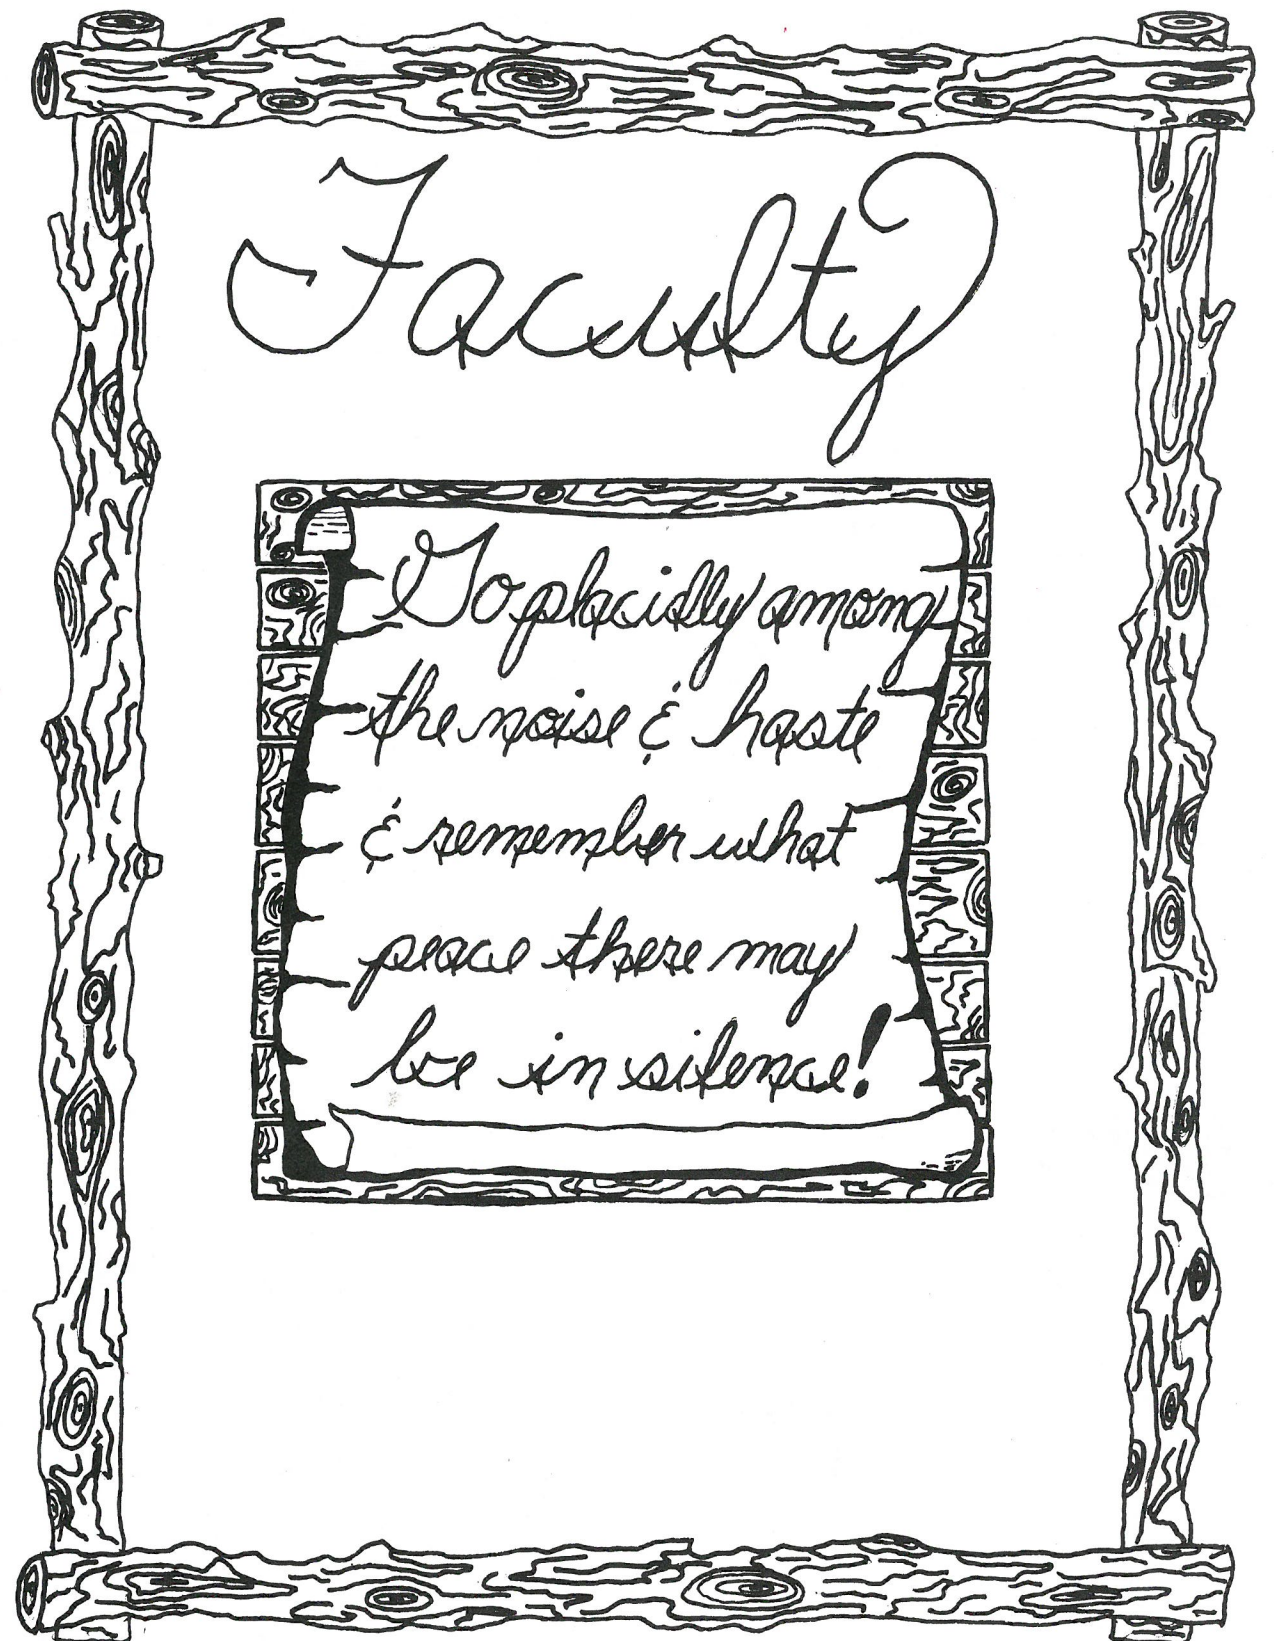 Faculty
Go placidly among
the noise & haste
& remember what
peace there may
be in silence!